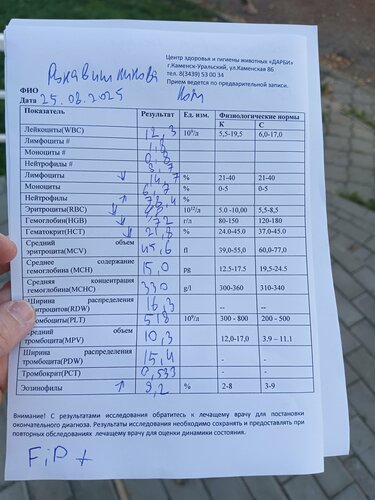 Центр здоровья и гигиены животных «ДАРБИ»
г.Каменск-Уральский, ул.Каменская 86
тел. 8(3439) 53 00 34
Прием ведется по предварительной записи.
ФИО Рукавишникова
Дата 25.08.2025 кот
Показатель Результат Ед. изм. Физиологические нормы
К С
Лейкоциты(WBC) 12,3 10⁹/л 5,5-19,5 6,0-17,0
Лимфоциты # 1,8
Моноциты # 0,8
Нейтрофилы # 9,7
Лимфоциты ↓ 14,7 % 21-40 21-40
Моноциты 6,7 % 0-5 0-5
Нейтрофилы ↑ 78,4 %
Эритроциты(RBC) ↓ 10¹²/л 5.0 -10,00 5,5-8,5
Гемоглобин(HGB) ↓ 72 г/л 80-150 120-180
Гематокрит(HCT) ↓ 21,8 % 24.0-45.0 37.0-45.0
Средний объем
эритроцита(MCV) 45,6 fl 39,0-55,0 60,0-77,0
Среднее содержание
гемоглобина (MCH) 15,0 pg 12.5-17.5 19,5-24.5
Средняя концентрация
гемоглобина(MCHC) 330 g/l 300-360 310-340
Ширина распределения
эритроцитов(RDW) 16,3 -- --
Тромбоциты(PLT) 518 10⁹/л 300 - 800 200 - 500
Средний объем
тромбоцита(MPV) 10,3 12,0-17,0 3.9 – 11.1
Ширина распределения
тромбоцита(PDW) 15,4 -- --
Тромбокрит(PCT) 0,533 -- --
Эозинофилы ↑ 9,2 % 2-8 3-9
Внимание! С результатами исследования обратитесь к лечащему врачу для постановки
окончательного диагноза. Результаты исследования необходимо сохранять и предоставлять при
повторных обследованиях лечащему врачу для оценки динамики состояния.
FiP +